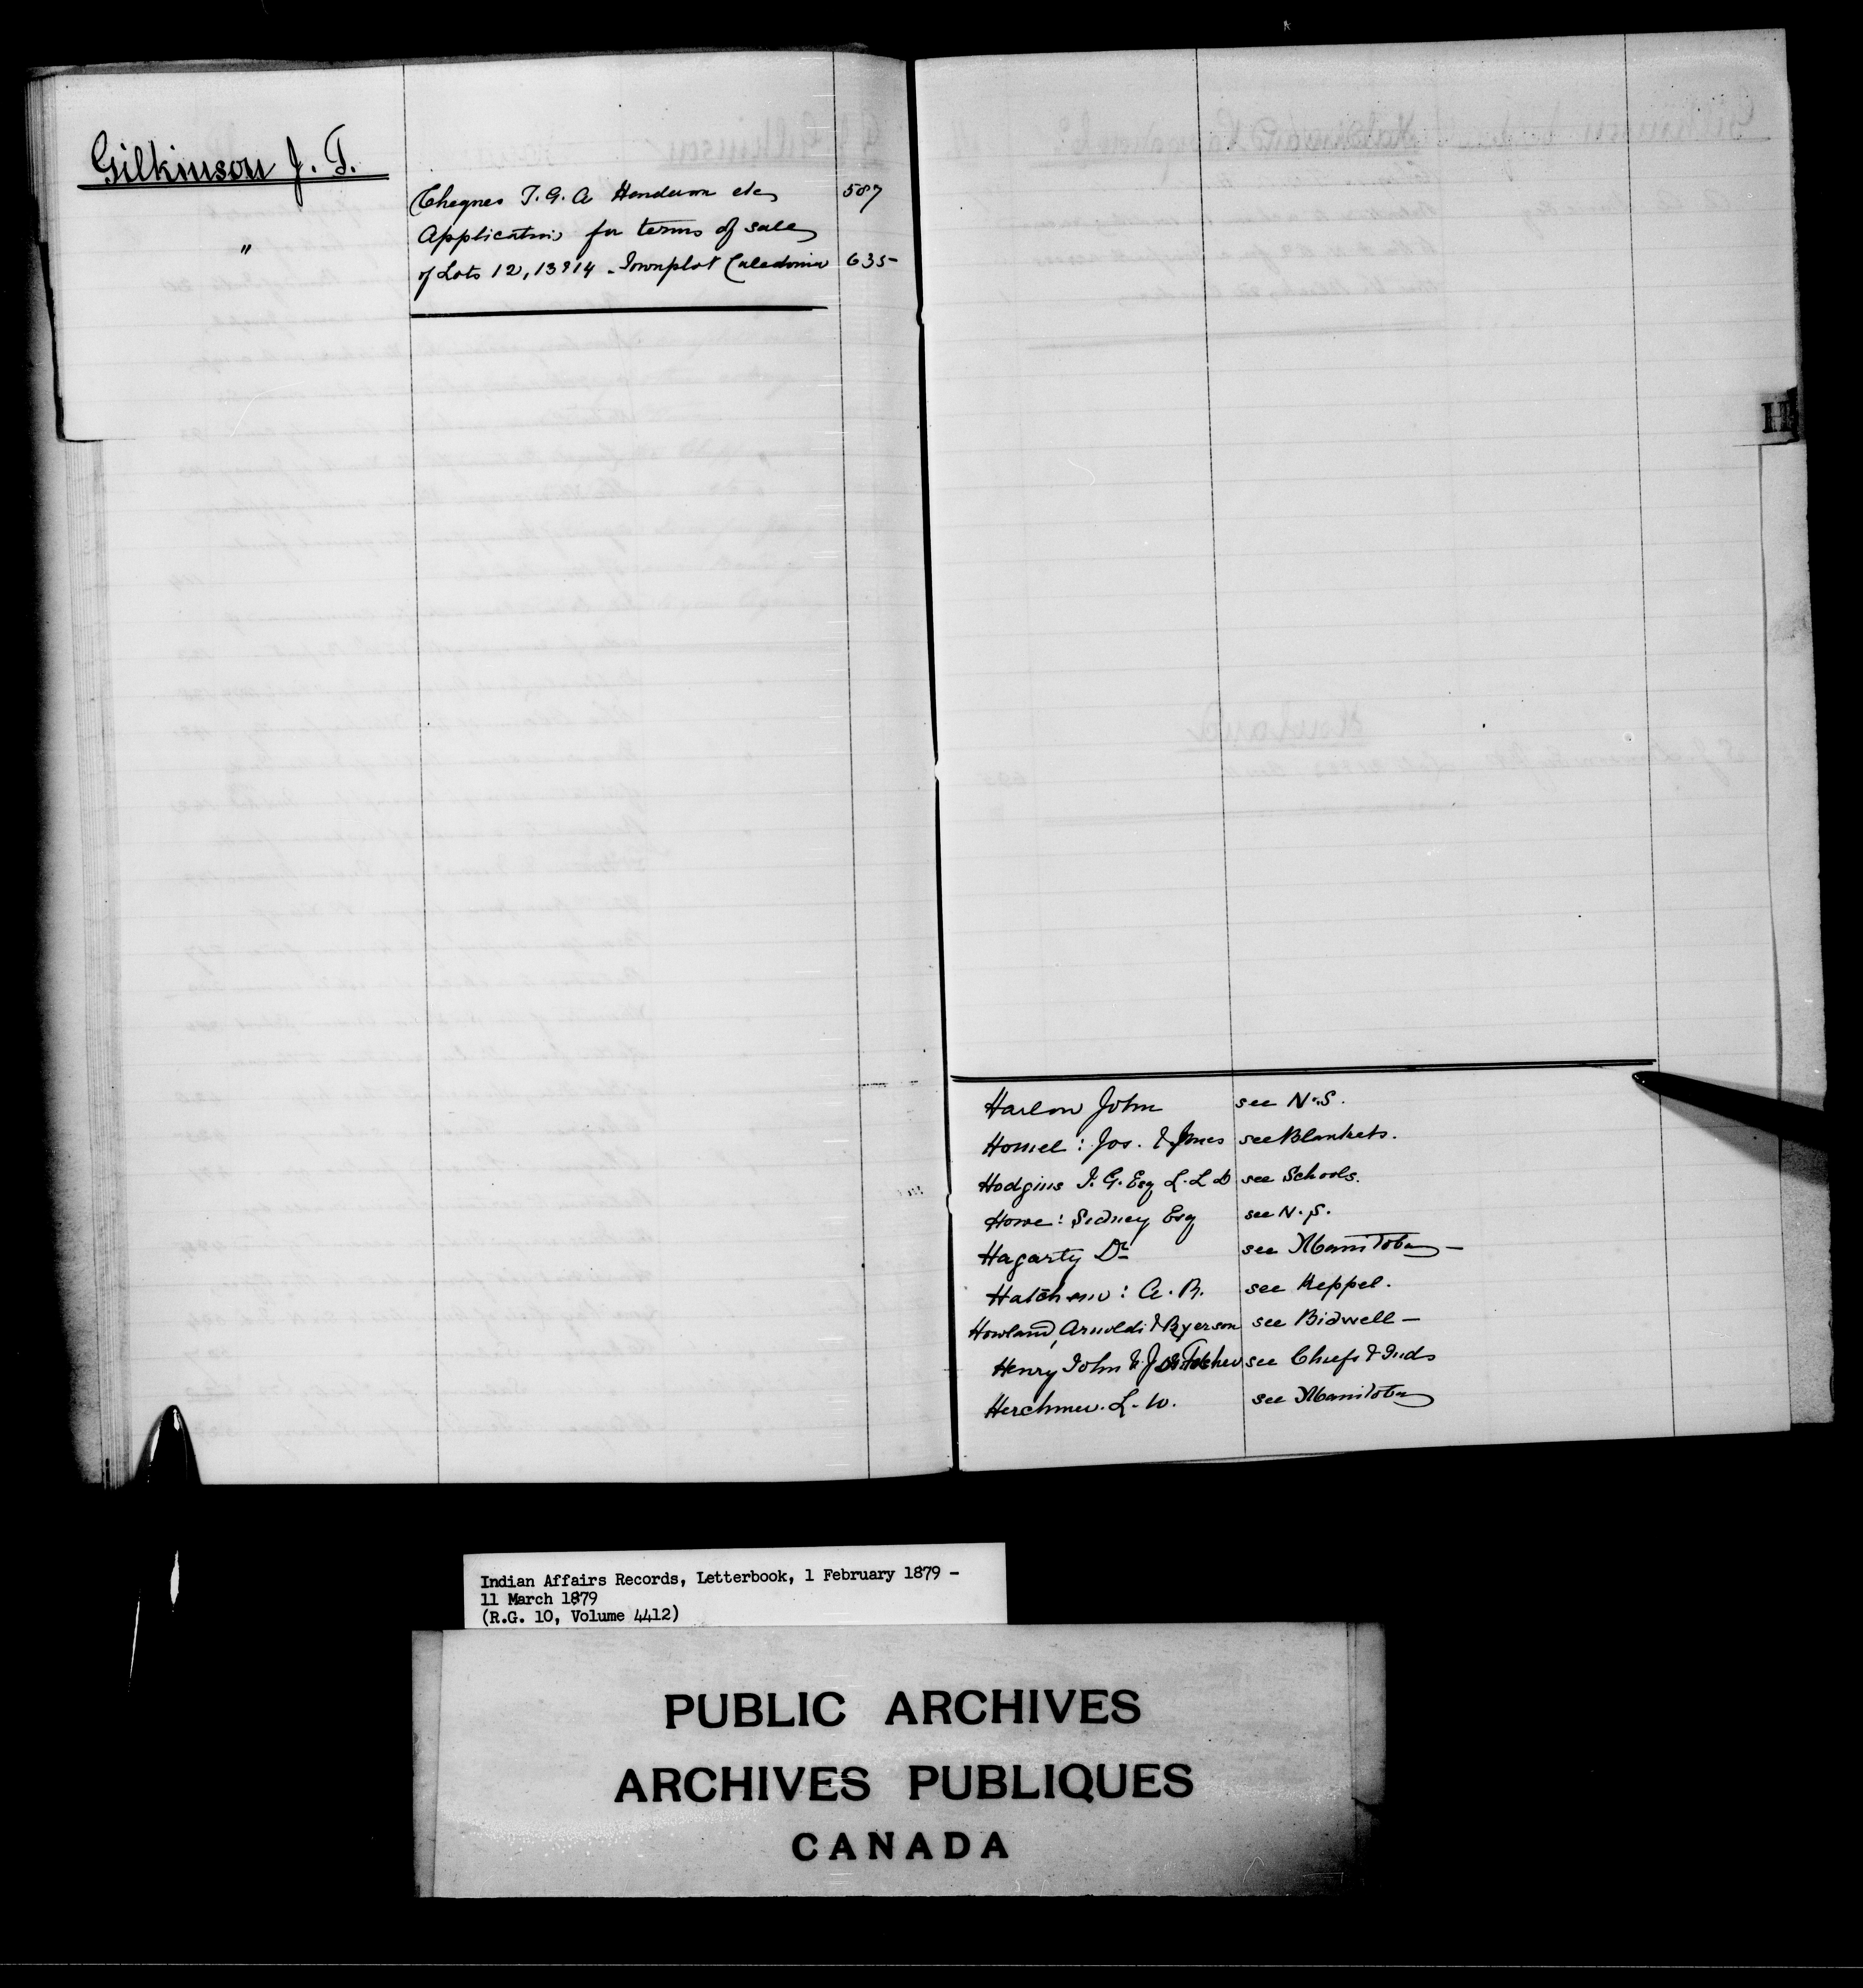 Gilkinson J. T.
Cheques T. G. A Henderson etc 587
" Application for terms of sale
of Lots 12, 13 & 14 - Townplot Caledonia 635
H
Harlow John see N.S.
Homel: Jos. & Jones see Blankets.
Hodgins J. G. Esq L.L.D see Schools.
Howe: Sidney Esq see N.S.
Hagarty Dr see Manitoba —
A. R. see Keppel.
Howland, Arnoldi & Ryerson see Bidwell —
Henry John & see Chiefs & Inds
Herchmer. L. W. see Manitoba
Indian Affairs Records, Letterbook, 1 February 1879 -
11 March 1879
(R.G. 10, Volume 4412)
PUBLIC ARCHIVES
ARCHIVES PUBLIQUES
CANADA